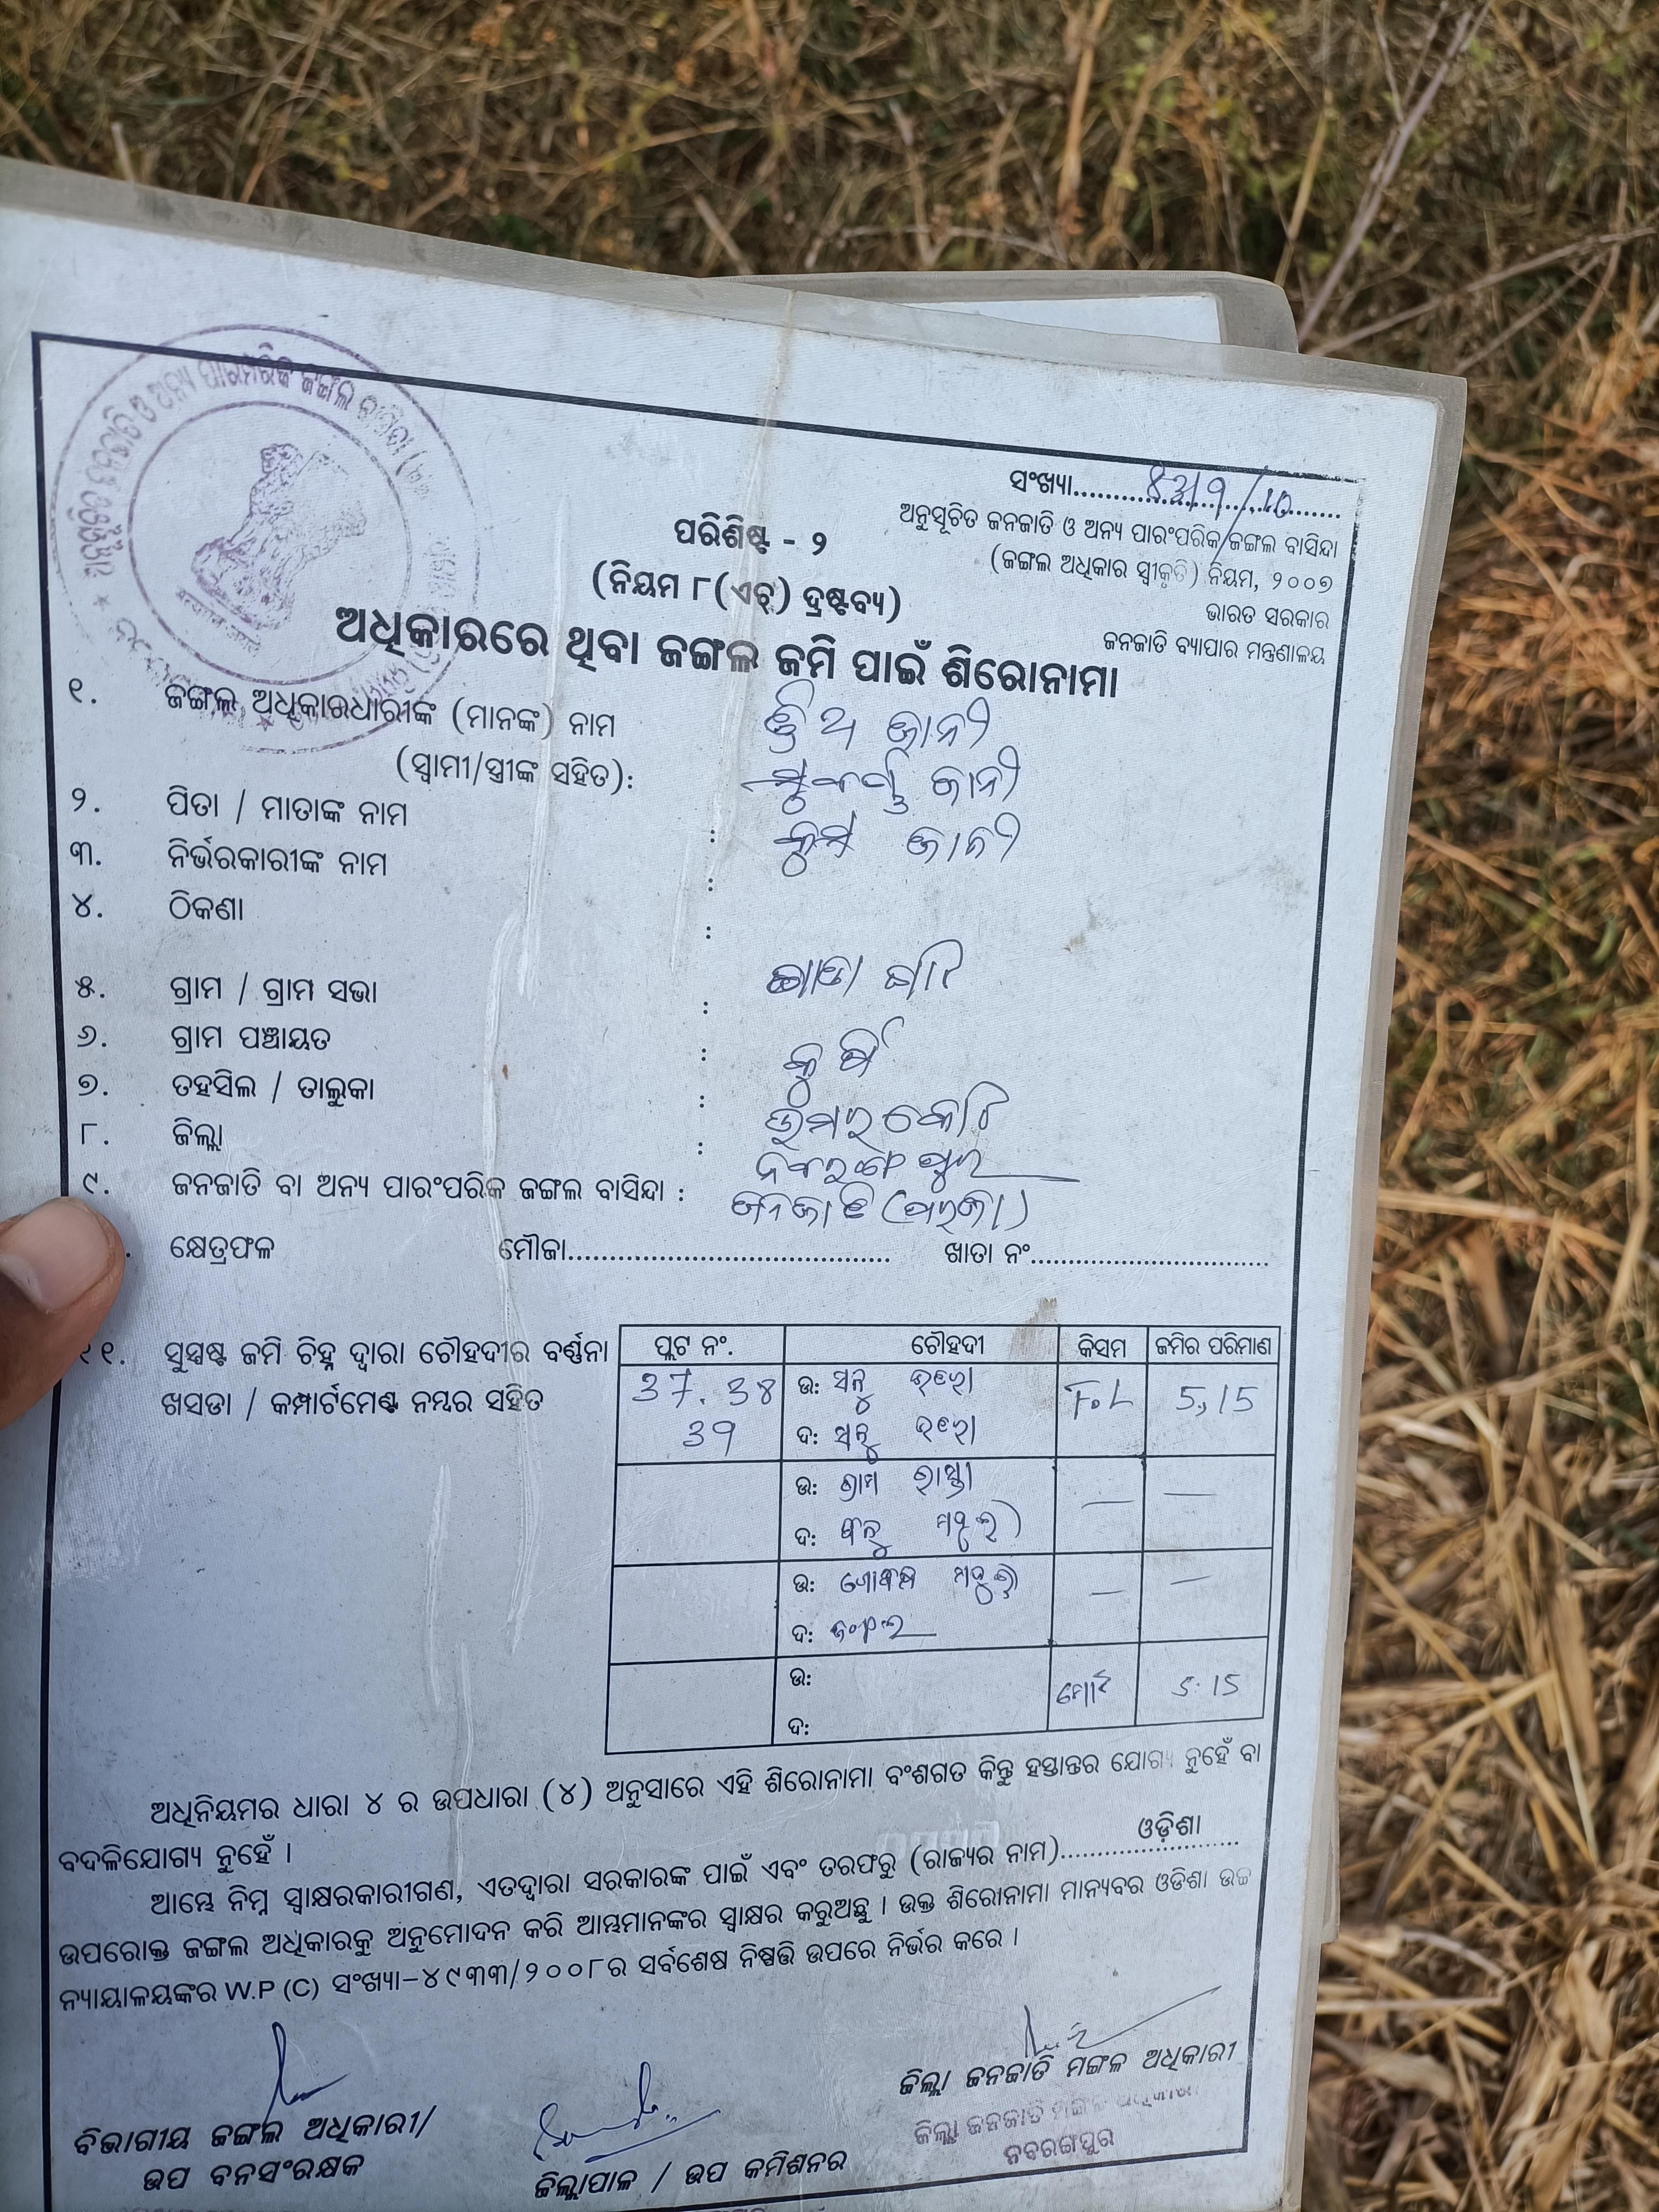 ସଂଖ୍ୟା
ଅନୁସୂଚିତ ଜନଜାତି ଓ ଅନ୍ୟ ପାରଂପରିକ ଜଙ୍ଗଲ ବାସିନ୍ଦା
(ଜଙ୍ଗଲ ଅଧିକାର ସ୍ୱୀକୃତି) ନିୟମ, ୨୦୦୭
ଭାରତ ସରକାର
ଜନଜାତି ବ୍ୟାପାର ମନ୍ତ୍ରଣାଳୟ
ପରିଶିଷ୍ଟ - ୨
(ନିୟମ ୮(ଏଚ୍) ଦ୍ରଷ୍ଟବ୍ୟ)
ଅଧିକାରରେ ଥିବା ଜଙ୍ଗଲ ଜମି ପାଇଁ ଶିରୋନାମା
୧. ଜଙ୍ଗଲ ଅଧିକାରଧାରୀଙ୍କ (ମାନଙ୍କ) ନାମ ଜାନୀ
(ସ୍ୱାମୀ/ସ୍ତ୍ରୀଙ୍କ ସହିତ): ଜାନୀ
୨. ପିତା / ମାତାଙ୍କ ନାମ : ଜାନୀ
୩. ନିର୍ଭରକାରୀଙ୍କ ନାମ :
୪. ଠିକଣା :
୫. ଗ୍ରାମ / ଗ୍ରାମ ସଭା :
୬. ଗ୍ରାମ ପଞ୍ଚାୟତ :
୭. ତହସିଲ / ତାଲୁକା : ଉମରକୋଟ
୮. ଜିଲ୍ଲା : ନବରଙ୍ଗପୁର
୯. ଜନଜାତି ବା ଅନ୍ୟ ପାରଂପରିକ ଜଙ୍ଗଲ ବାସିନ୍ଦା : ଜନଜାତି (ପରଜା)
କ୍ଷେତ୍ରଫଳ ମୌଜା ଖାତା ନଂ
୧୧. ସୁସ୍ପଷ୍ଟ ଜମି ଚିହ୍ନ ଦ୍ୱାରା ଚୌହଦୀର ବର୍ଣ୍ଣନା
ଖସଡା / କମ୍ପାର୍ଟମେଣ୍ଟ ନମ୍ଭର ସହିତ
ପ୍ଲଟ ନଂ. ଚୌହଦୀ କିସମ ଜମିର ପରିମାଣ
37. 38 ଉ: F.L 5,15
39 ଦ:
ଉ: ଗ୍ରାମ ରାସ୍ତା — —
ଦ:
ଉ: — —
ଦ: ଜଂଗଲ
ଉ: ମୋଟ 5.15
ଦ:
ଅଧିନିୟମର ଧାରା ୪ ର ଉପଧାରା (୪) ଅନୁସାରେ ଏହି ଶିରୋନାମା ବଂଶଗତ କିନ୍ତୁ ହସ୍ତାନ୍ତର ଯୋଗ୍ୟ ନୁହେଁ ବା
ବଦଳିଯୋଗ୍ୟ ନୁହେଁ ।
ଆମ୍ଭେ ନିମ୍ନ ସ୍ୱାକ୍ଷରକାରୀଗଣ, ଏତଦ୍ୱାରା ସରକାରଙ୍କ ପାଇଁ ଏବଂ ତରଫରୁ (ରାଜ୍ୟର ନାମ) ଓଡ଼ିଶା
ଉପରୋକ୍ତ ଜଙ୍ଗଲ ଅଧିକାରକୁ ଅନୁମୋଦନ କରି ଆମ୍ଭମାନଙ୍କର ସ୍ୱାକ୍ଷର କରୁଅଛୁ । ଉକ୍ତ ଶିରୋନାମା ମାନ୍ୟବର ଓଡିଶା ଉଚ୍ଚ
ନ୍ୟାୟାଳୟଙ୍କର W.P (C) ସଂଖ୍ୟା-୪୯୩୩/୨୦୦୮ର ସର୍ବଶେଷ ନିଷ୍ପତ୍ତି ଉପରେ ନିର୍ଭର କରେ ।
ବିଭାଗୀୟ ଜଙ୍ଗଲ ଅଧିକାରୀ/
ଉପ ବନସଂରକ୍ଷକ
ଜିଲ୍ଲାପାଳ / ଉପ କମିଶନର
ଜିଲ୍ଲା ଜନଜାତି ମଙ୍ଗଳ ଅଧିକାରୀ
ଜିଲ୍ଲା ଜନଜାତି ମଙ୍ଗଳ ଅଧିକାରୀ
ନବରଙ୍ଗପୁର